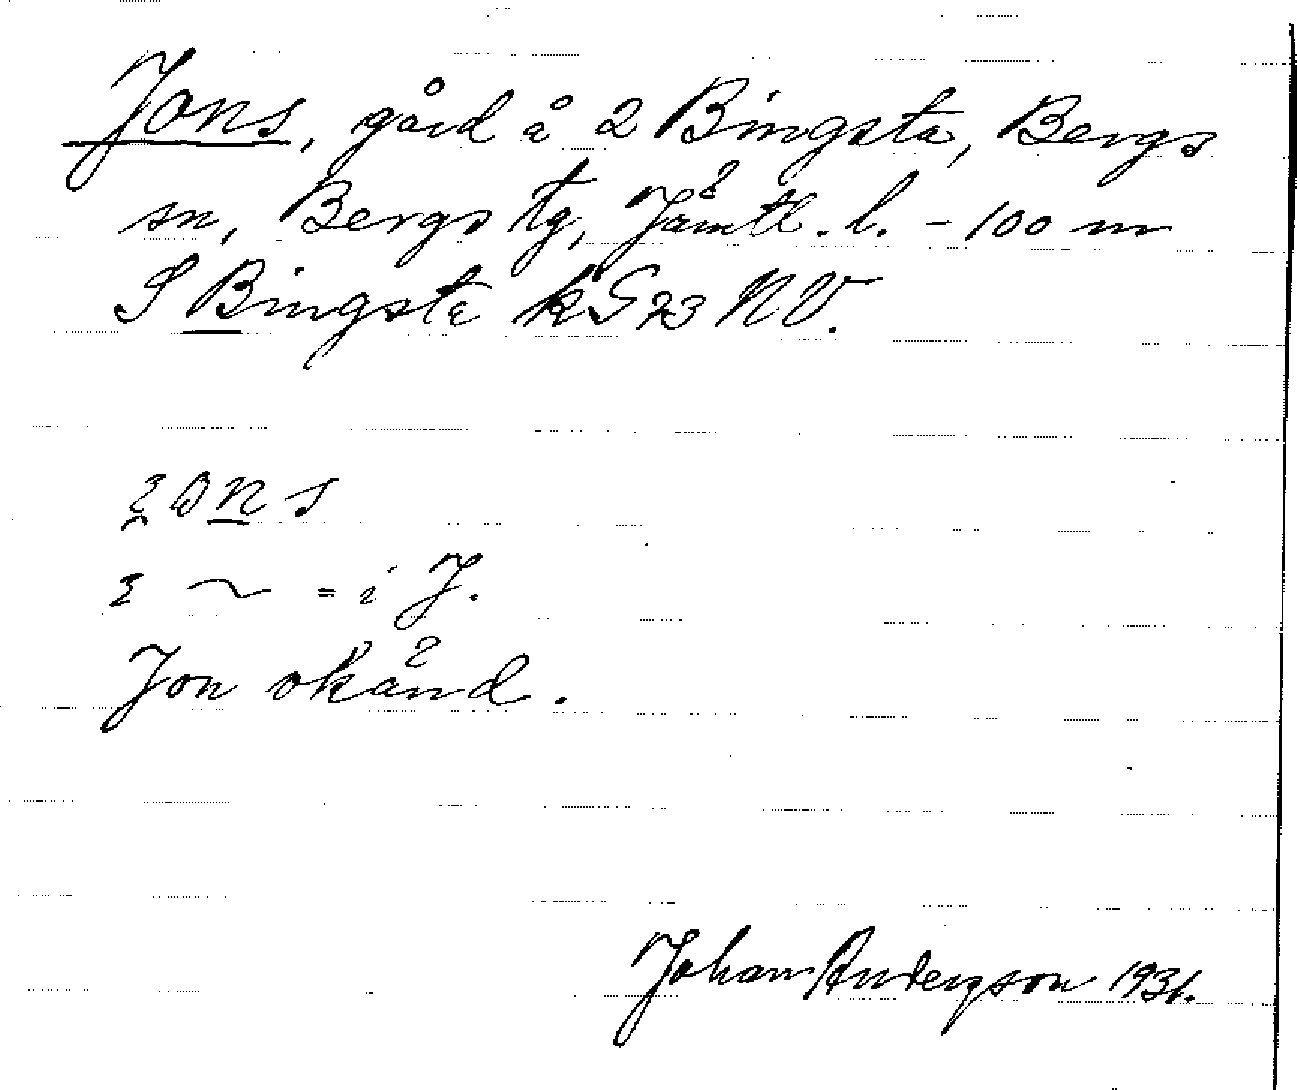 Jons, gård å 2 Bingsta, Bergs
sn, Bergs tg, Jämtl. l. - 100 m
S Bingsta k G 23 NV.
~ = i J.
Jon okänd.
Johan Anderzson 1931.